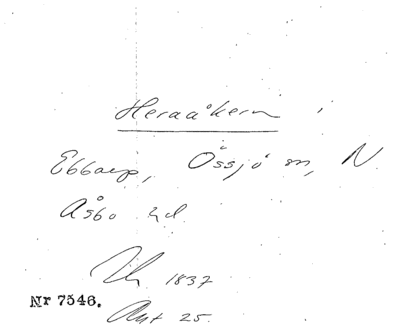 Heraåkern i
Ebbarp, Össjö sn, N
Åsbo hd
1837
Nr 7546.
Akt 25.